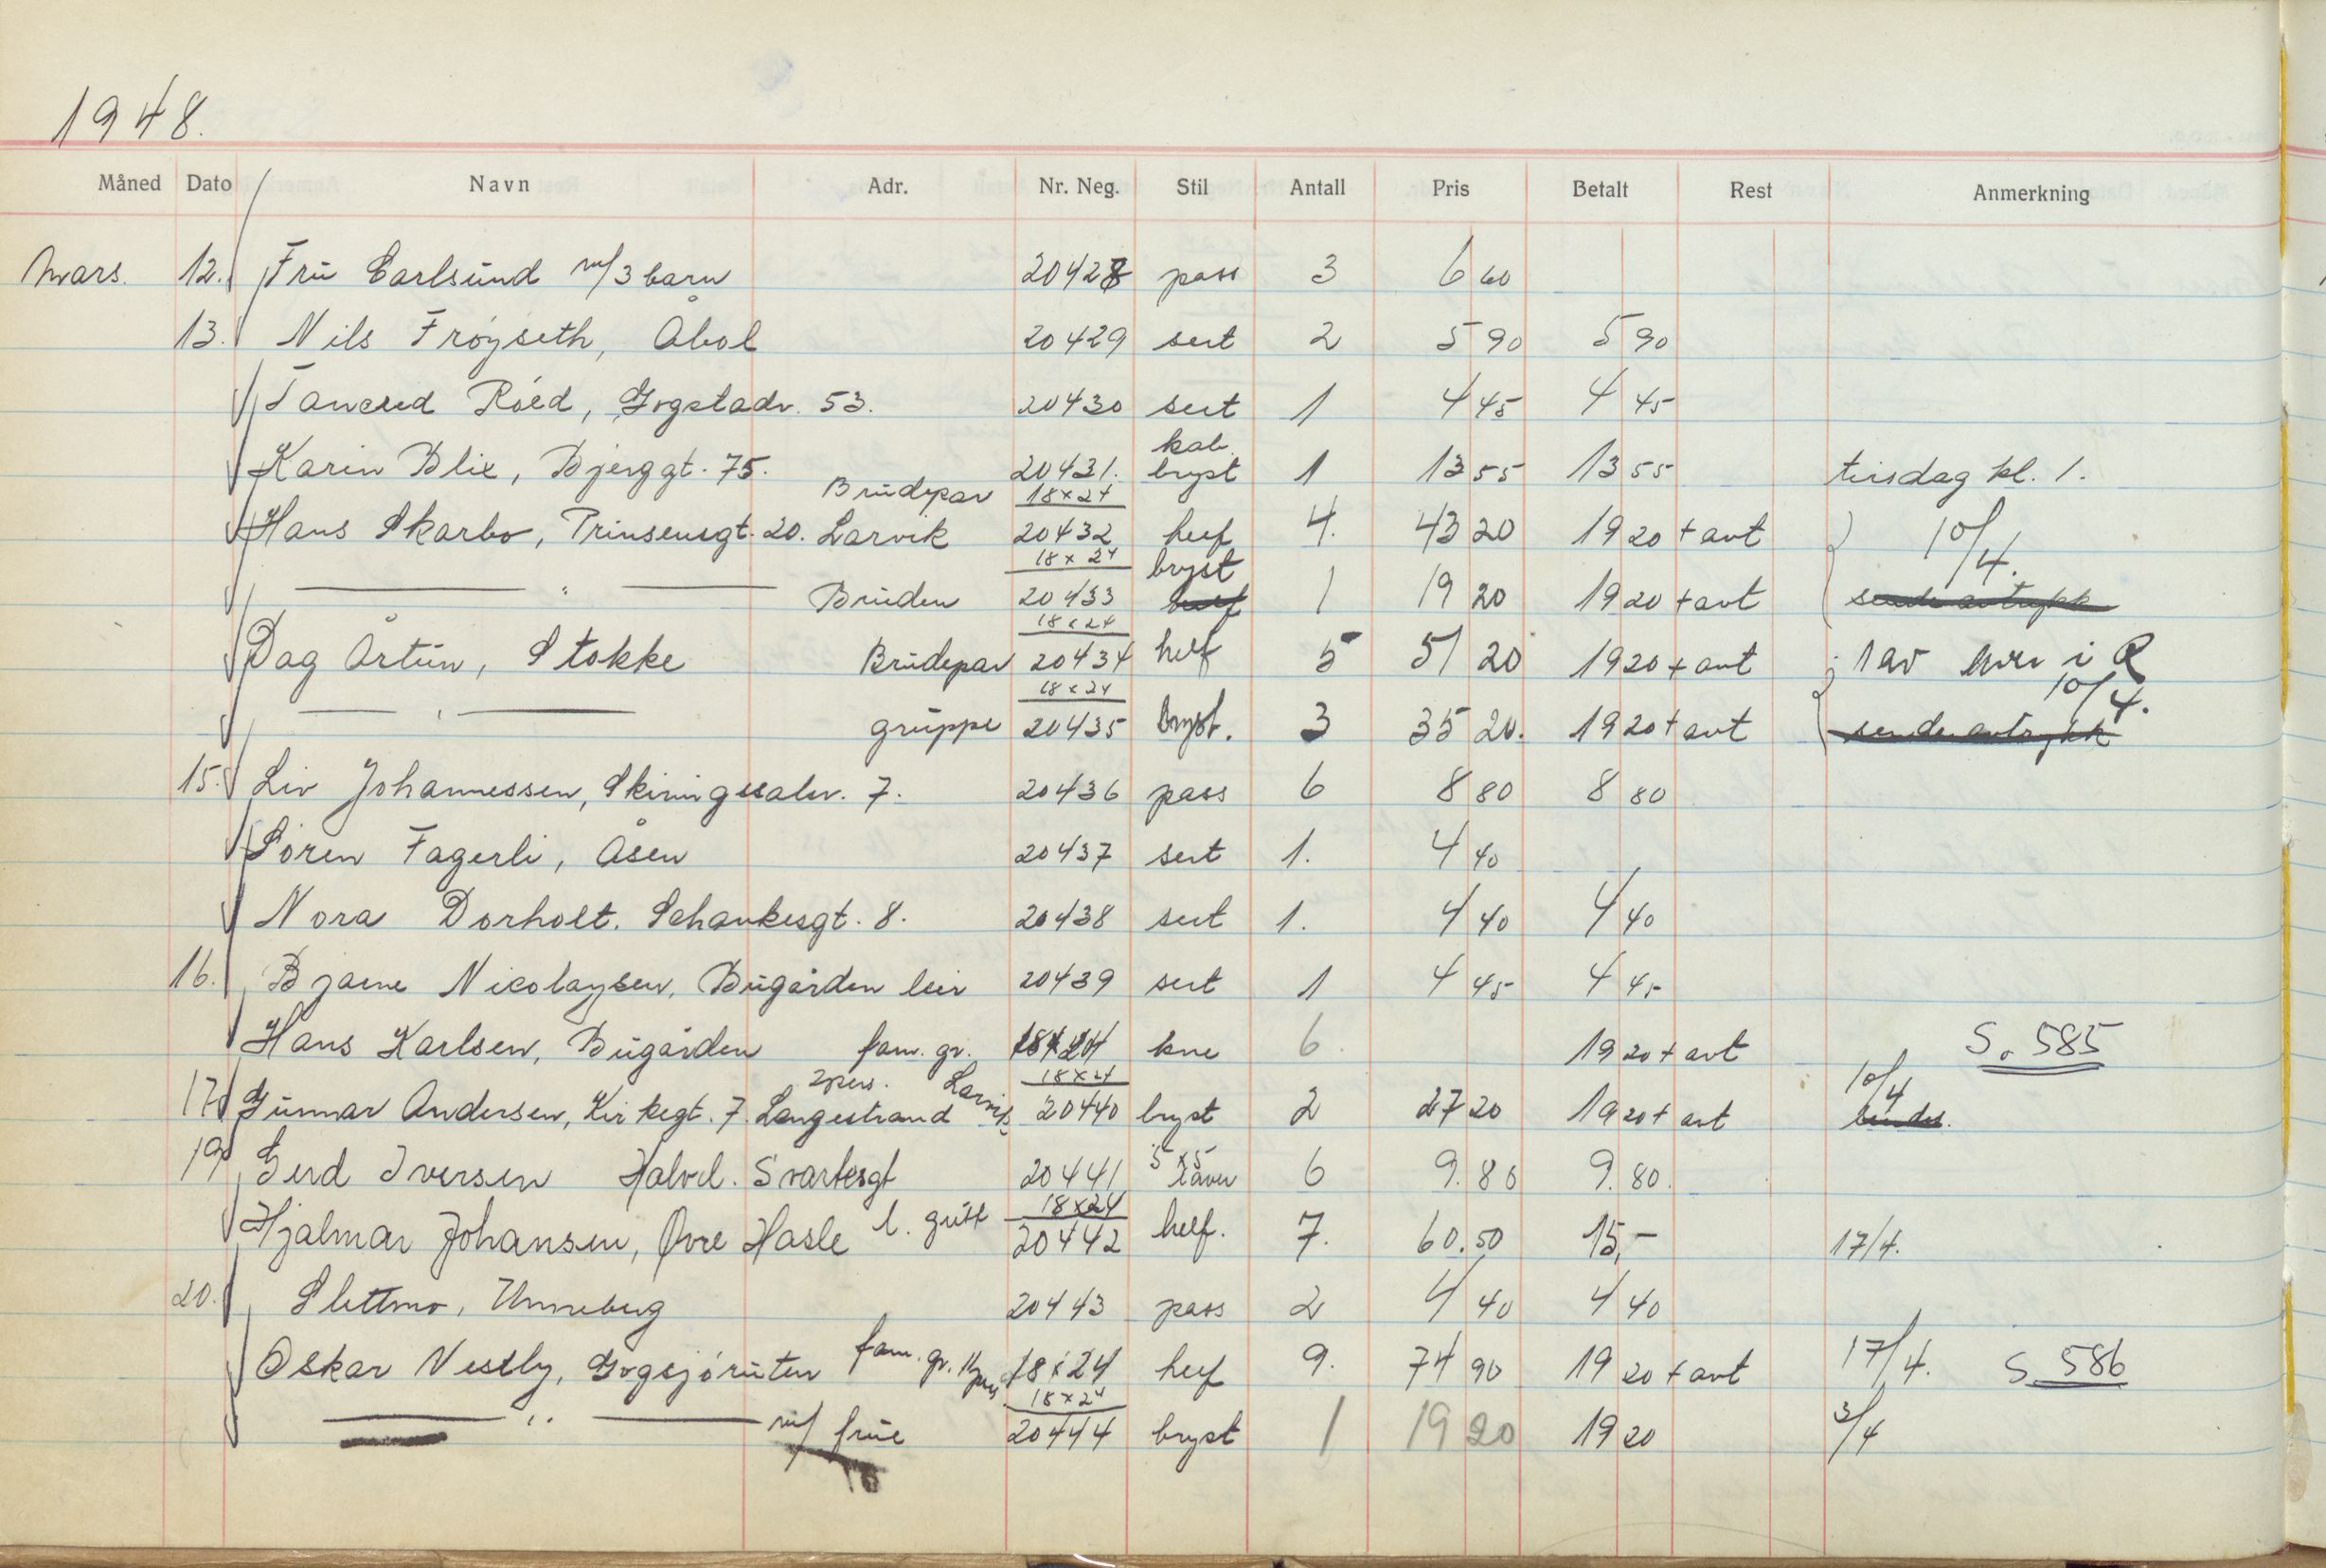 1948.
Måned Dato Navn Adr. Nr. Neg. Stil Antall Pris Betalt Rest Anmerkning
Mars. 12. Fru Carlsund m/3 barn 20428 pass 3 6 60
13. Nils Frøyseth, Åbol 20429 sert 2 5 90 5 90
Tancred Röed, Gogstadv. 53. 20430 sert 1 4 45 4 45
Karin Blix, Bjerggt. 75. 20431. kab. bryst 1 13 55 13 55 tirsdag kl. 1.
Hans Skarbo, Prinsensgt. 20. Larvik Brudepar 18x24 20432 helf 4. 43 20 19 20 + avt 10/4.
— " — Bruden 18x24 20433 bryst helf 1 19 20 19 20 + avt sende avtrykk
Dag Årtun, Stokke Brudepar 18x24 20434 helf 5 51 20 19 20 + avt 1 av hver i R
— " — gruppe 18x24 20435 bryst. 3 35 20. 19 20 + avt 10/4. sende avtrykk
15. Liv Johannessen, Skiringssalsv. 7. 20436 pass 6 8 80 8 80
Sören Fagerli, Åsen 20437 sert 1. 4 40
Nora Dorholt. Schankesgt. 8. 20438 sert 1. 4 40 4 40
16. Bjarne Nicolaysen, Bugården leir 20439 sert 1 4 45 4 45
Hans Karlsen, Bugården fam. gr. 18x24 kne 6. 19 20 + avt S. 585
17. Gunnar Andersen, Kirkegt. 7. Langestrand Larvik 2pers. 18x24 20440 bryst 2 27 20 19 20 + avt 10/4 sendes.
19. Gerd Iversen Halvd. Svartesgt 20441 5x5 6 9. 80 9. 80.
Hjalmar Johansen, Øvre Hasle l. gutt 18x24 20442 helf. 7. 60.50 15,- 17/4.
20. Slettmo, Unneberg 20443 pass 2 4 40 4 40
Oskar Vestly, Gogsjøruten fam. gr. 11 pers 18x24 helf 9. 74 90 19 20 + avt 17/4. S 586
— " — m/ frue 18x24 20444 bryst 1 19 20 19 20 3/4